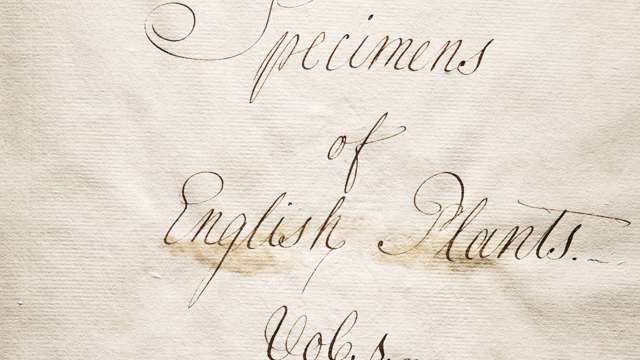 Specimens
of
English Plants.
Vol. 1.